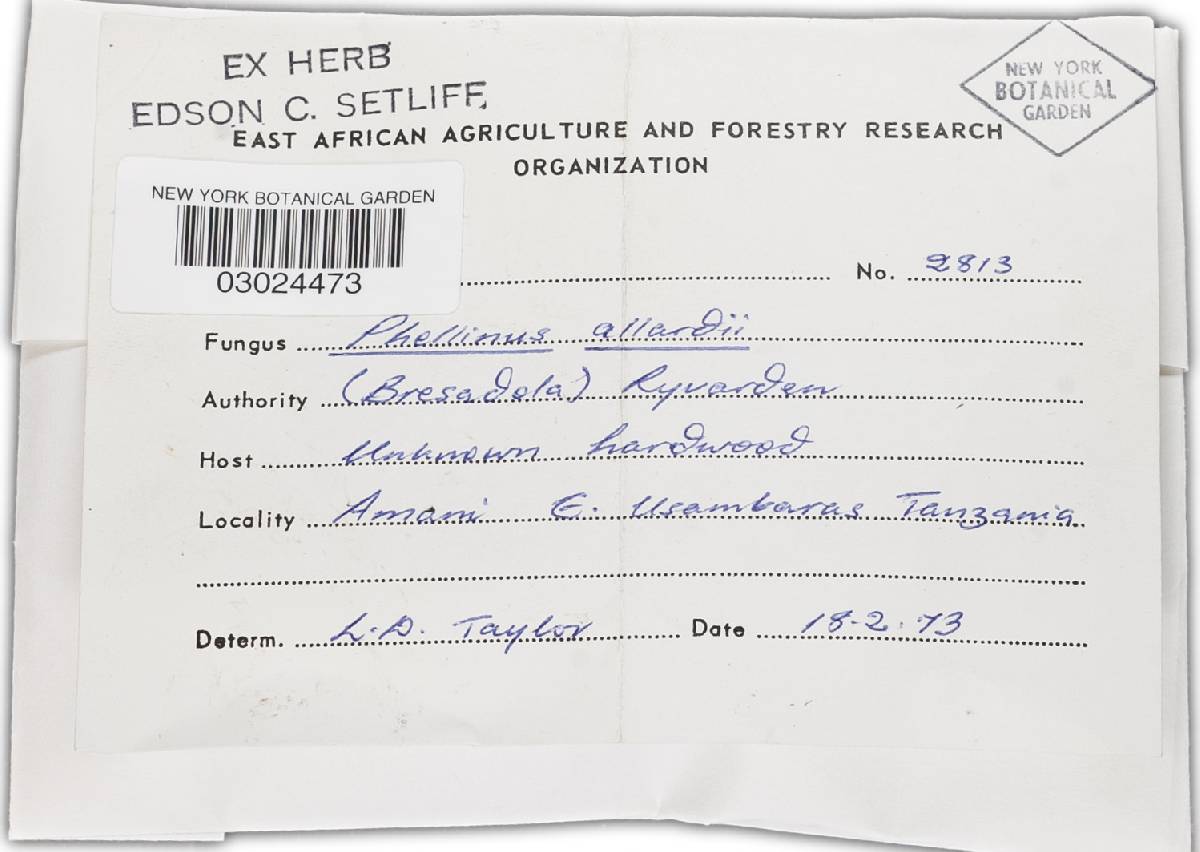 EX HERB
EDSON C. SETLIFF
NEW YORK
BOTANICAL
GARDEN
EAST AFRICAN AGRICULTURE AND FORESTRY RESEARCH
ORGANIZATION
NEW YORK BOTANICAL GARDEN
03024473
No. 2813
Fungus Phellinus allardii
Authority (Bresadola) Ryvarden
Host Unknown hardwood
Locality Amani E. Usambaras Tanzania
Determ. L.D. Taylor Date 18-2.73